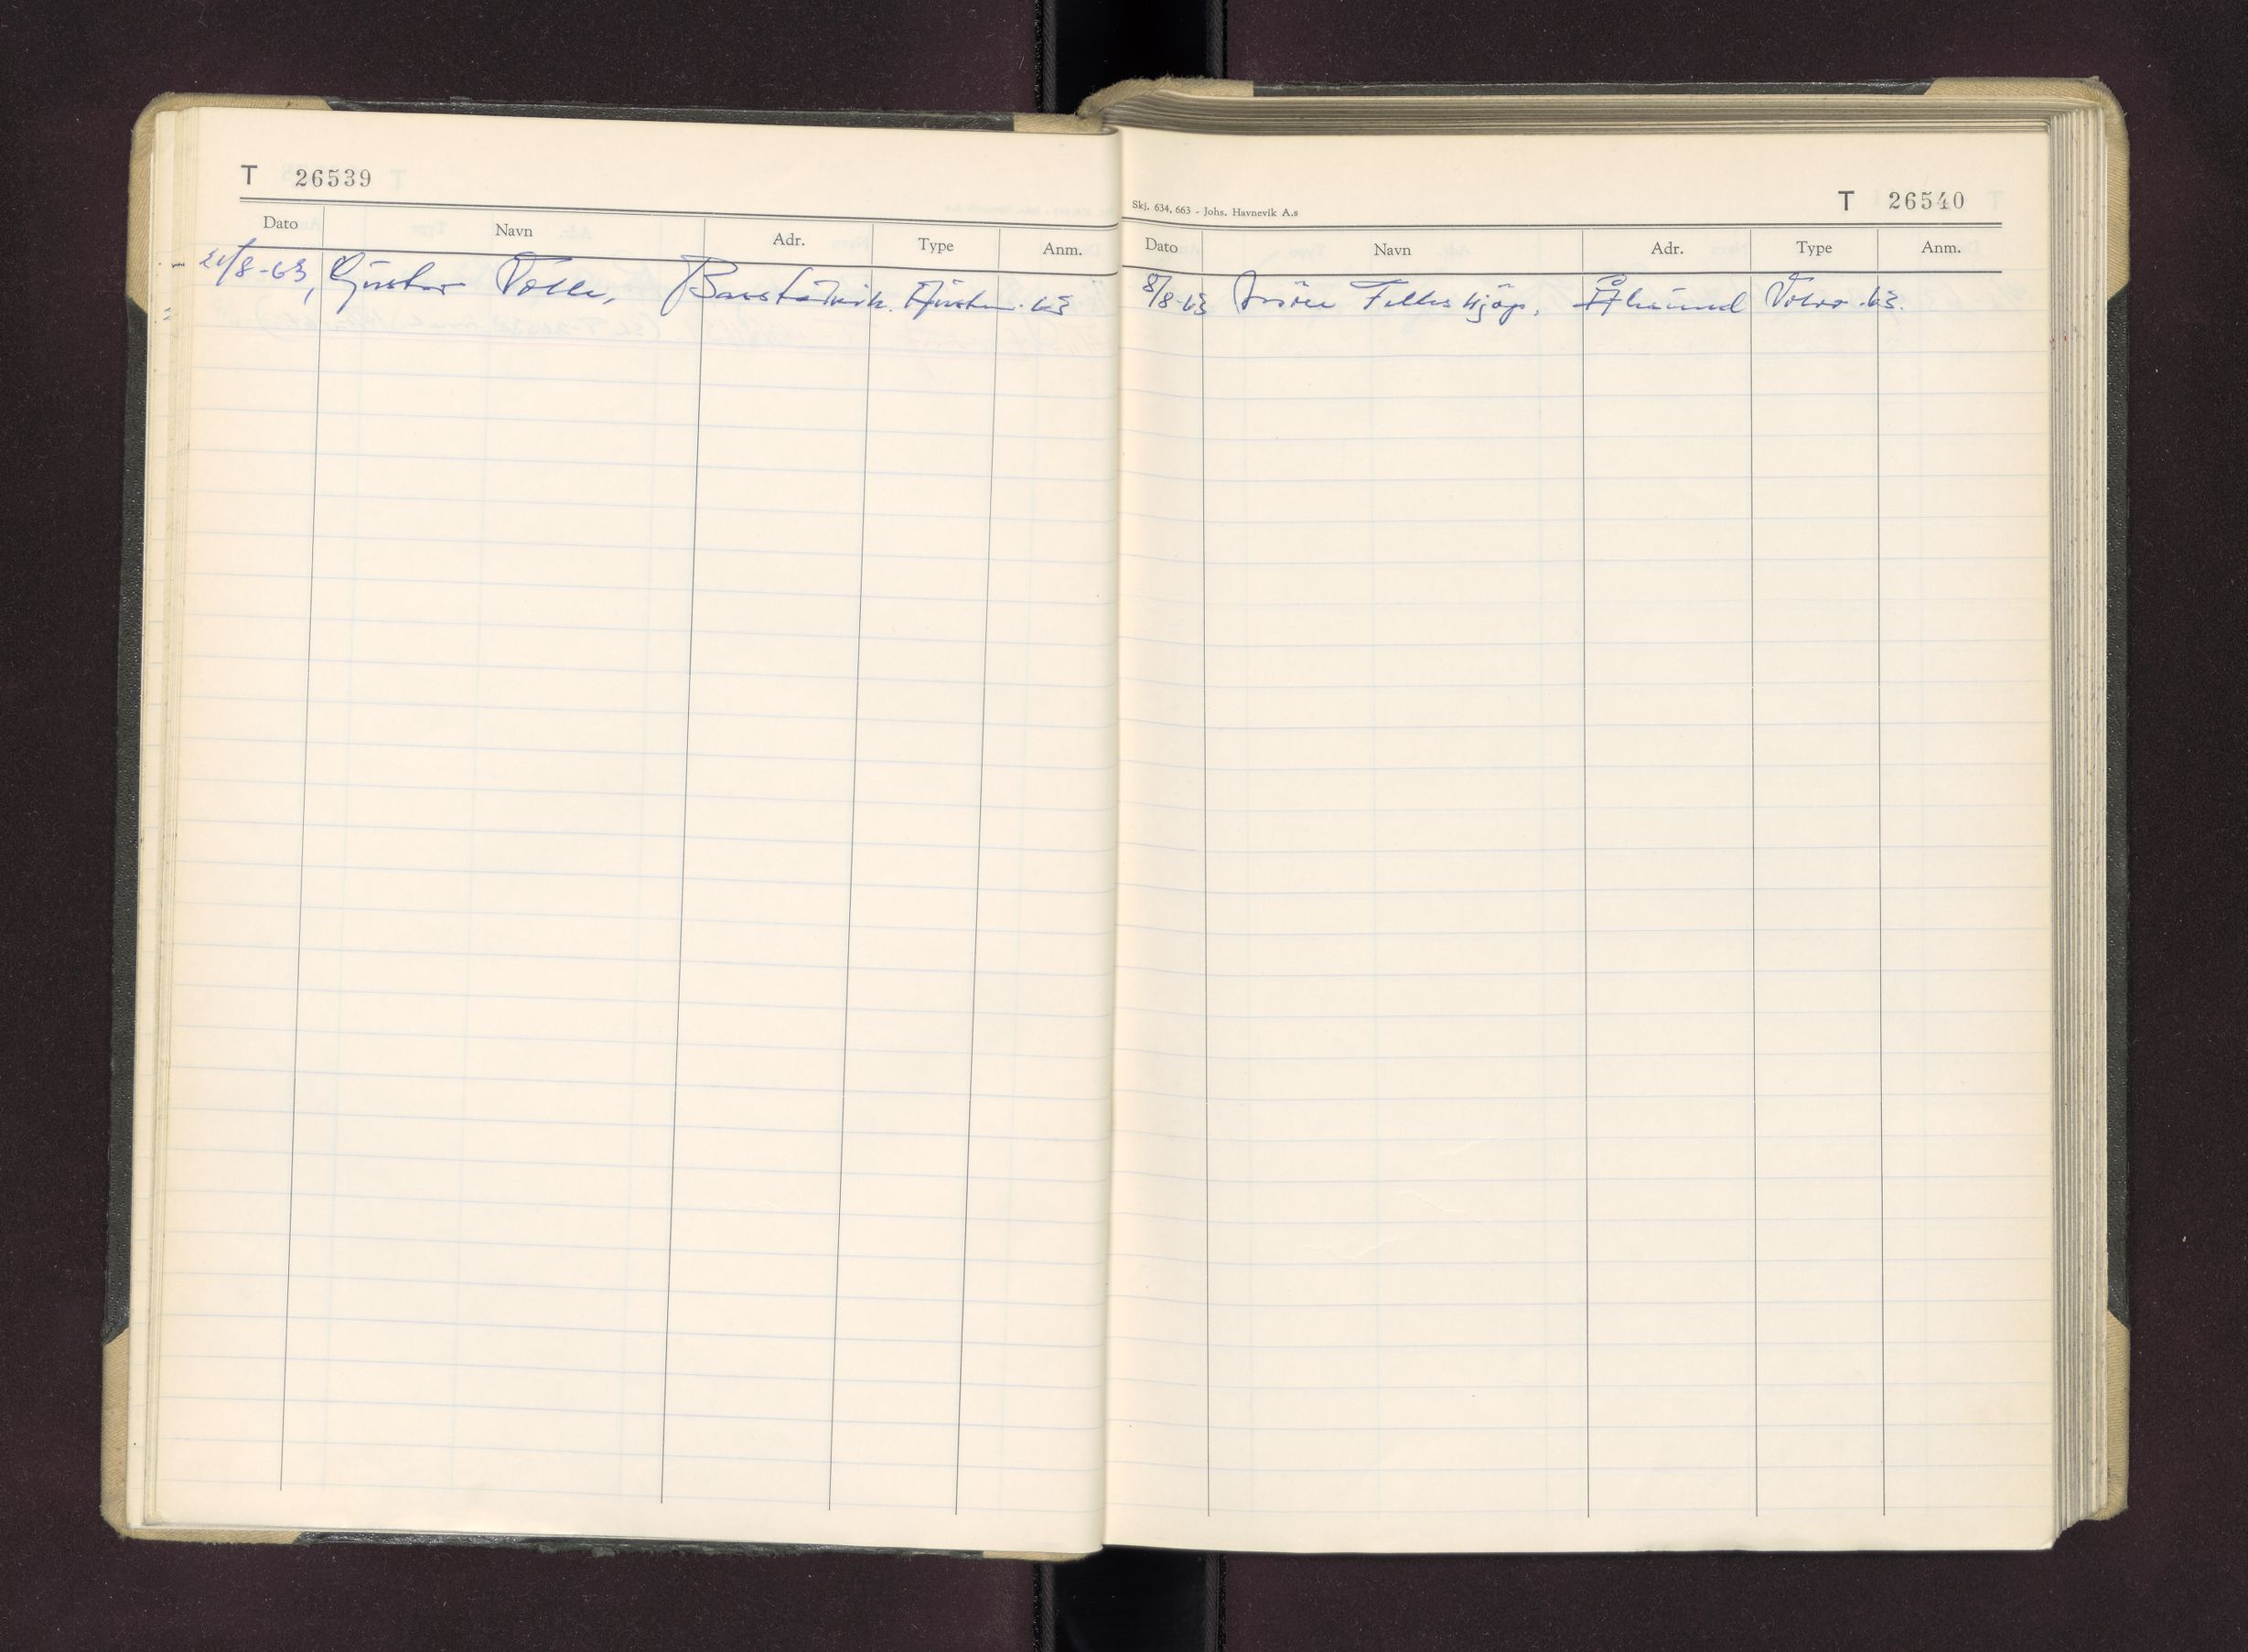 T 26539
Dato Navn Adr. Type Anm.
21/8-63, Gustav Tolle, Barstadvik. Austin. 63
Skj. 634, 663 - Johs. Havnevik A.s
T 26540
Dato Navn Adr. Type Anm.
8/8-63 Møre Felleskjøp, Ålesund Volvo. 63.